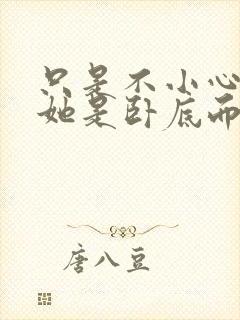 只是不小心
她是卧底而
唐八豆